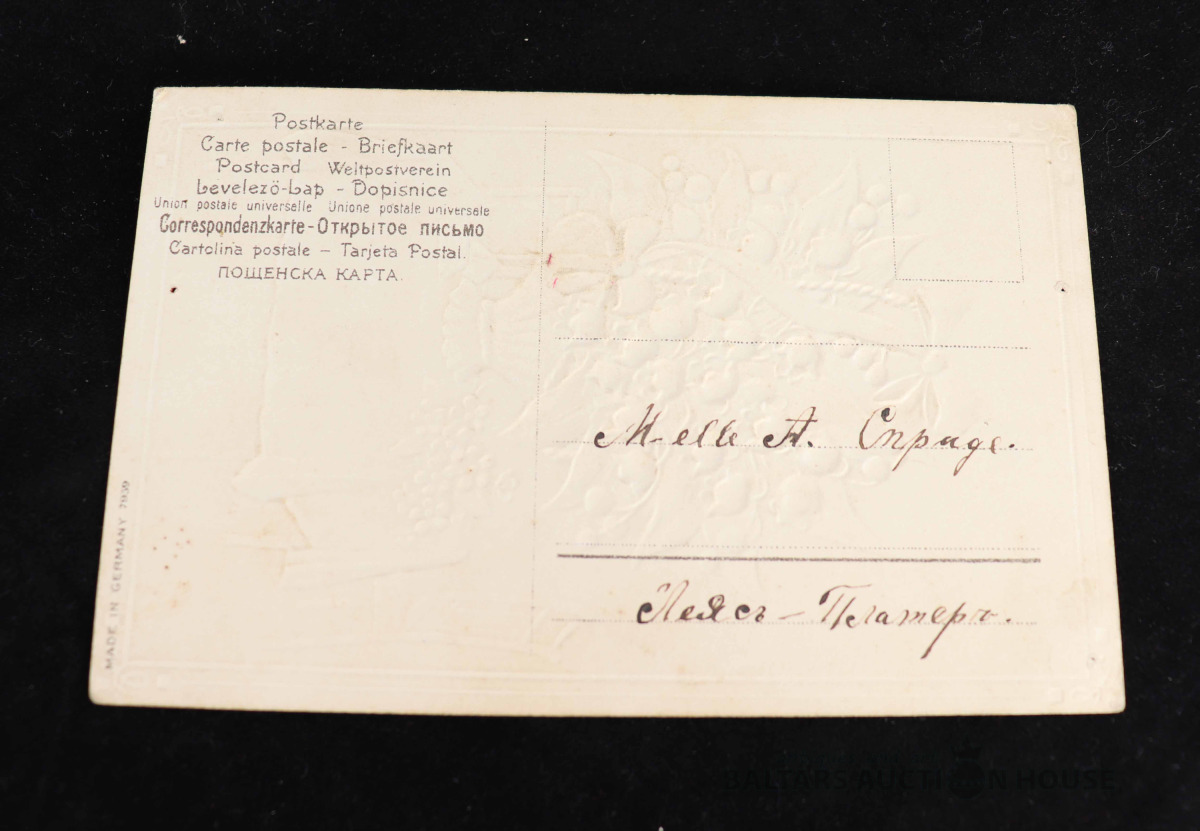 Postkarte
Carte postale - Briefkaart
Postcard Weltpostverein
Levelezö-Lap - Dopisnice
Union postale universelle Unione postale universale
Correspondenzkarte - Открытое письмо
Cartolina postale - Tarjeta Postal.
ПОЩЕНСКА КАРТА.
M-elle A. Сприде.
Леясъ - Платеръ.
MADE IN GERMANY 7939
BALTARS AUCTION HOUSE